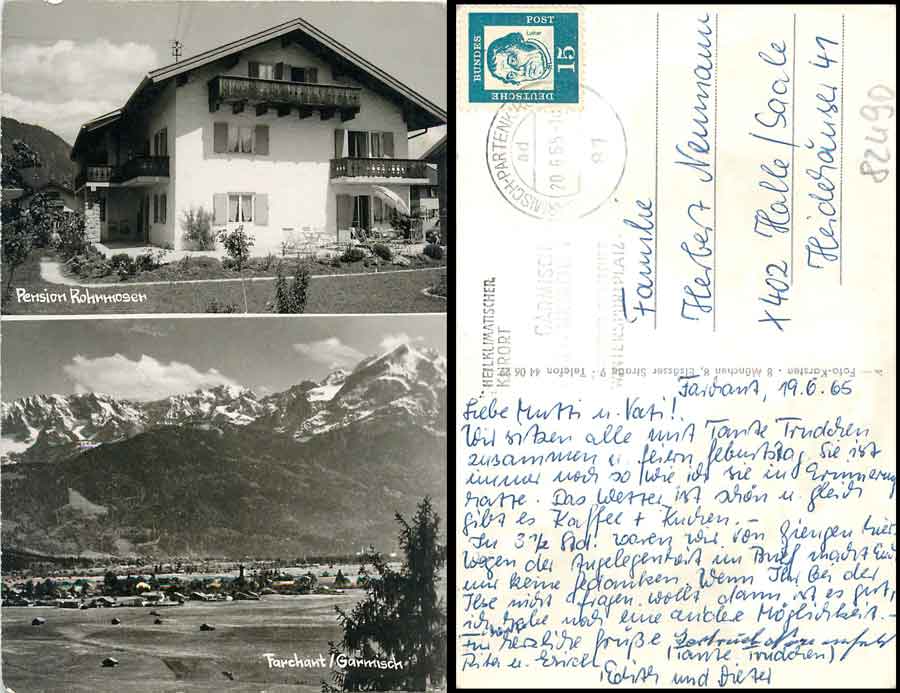 Pension Rohrmoser
Farchant/Garmisch
DEUTSCHE BUNDESPOST
Luther
15
GARMISCH-PARTENK
ad
20.6.65-18
81
HEILKLIMATISCHER
KURORT
GARMISCH
WINTERSPORTPLATZ
Familie
Herbert Neumann
X402 Halle/Saale
Heidehäuser 41
82490
Foto-Karsten · 8 München 8, Elsässer Straße 9 · Telefon 44 06 22
Farchant, 19.6.65
Liebe Mutti u. Vati!
Wir sitzen alle mit Tante Trudchen
zusammen u. feiern Geburtstag. Sie ist
immer noch so wie ich sie in Erinnerung
hatte. Das Wetter ist schön u. gleich
gibt es Kaffee + Kuchen. –
In 3 ½ Std. waren wir von Giengen hier.
Wegen der Angelegenheit im Brief macht Euch
nur keine Gedanken. Wenn Ihr bei der
Ilse nicht fragen wollt dann ist es gut,
ich habe noch eine andere Möglichkeit. –
Für heute herzliche Grüße
Peter u. (Tante Trudchen)
Edith und Dieter